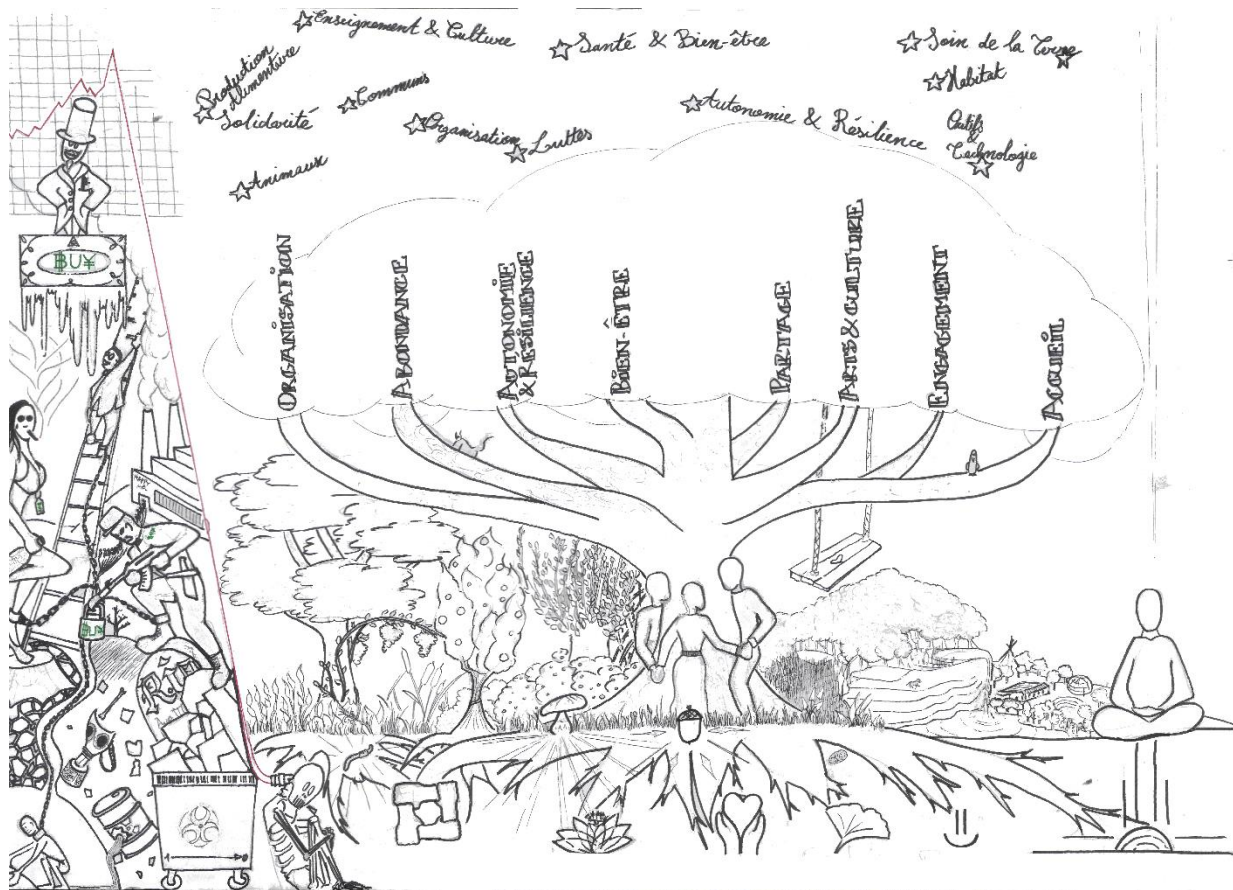 Enseignement & Culture
Santé & Bien-être
Soin de la Terre
Production
Alimentaire
Solidarité
Communs
Habitat
Organisation
Luttes
Autonomie & Résilience
Outils
&
Technologie
Animaux
BUY
ORGANISATION
ABONDANCE
AUTONOMIE
& RÉSILIENCE
BIEN-ÊTRE
PARTAGE
ARTS & CULTURE
ENGAGEMENT
ACCUEIL
BUY